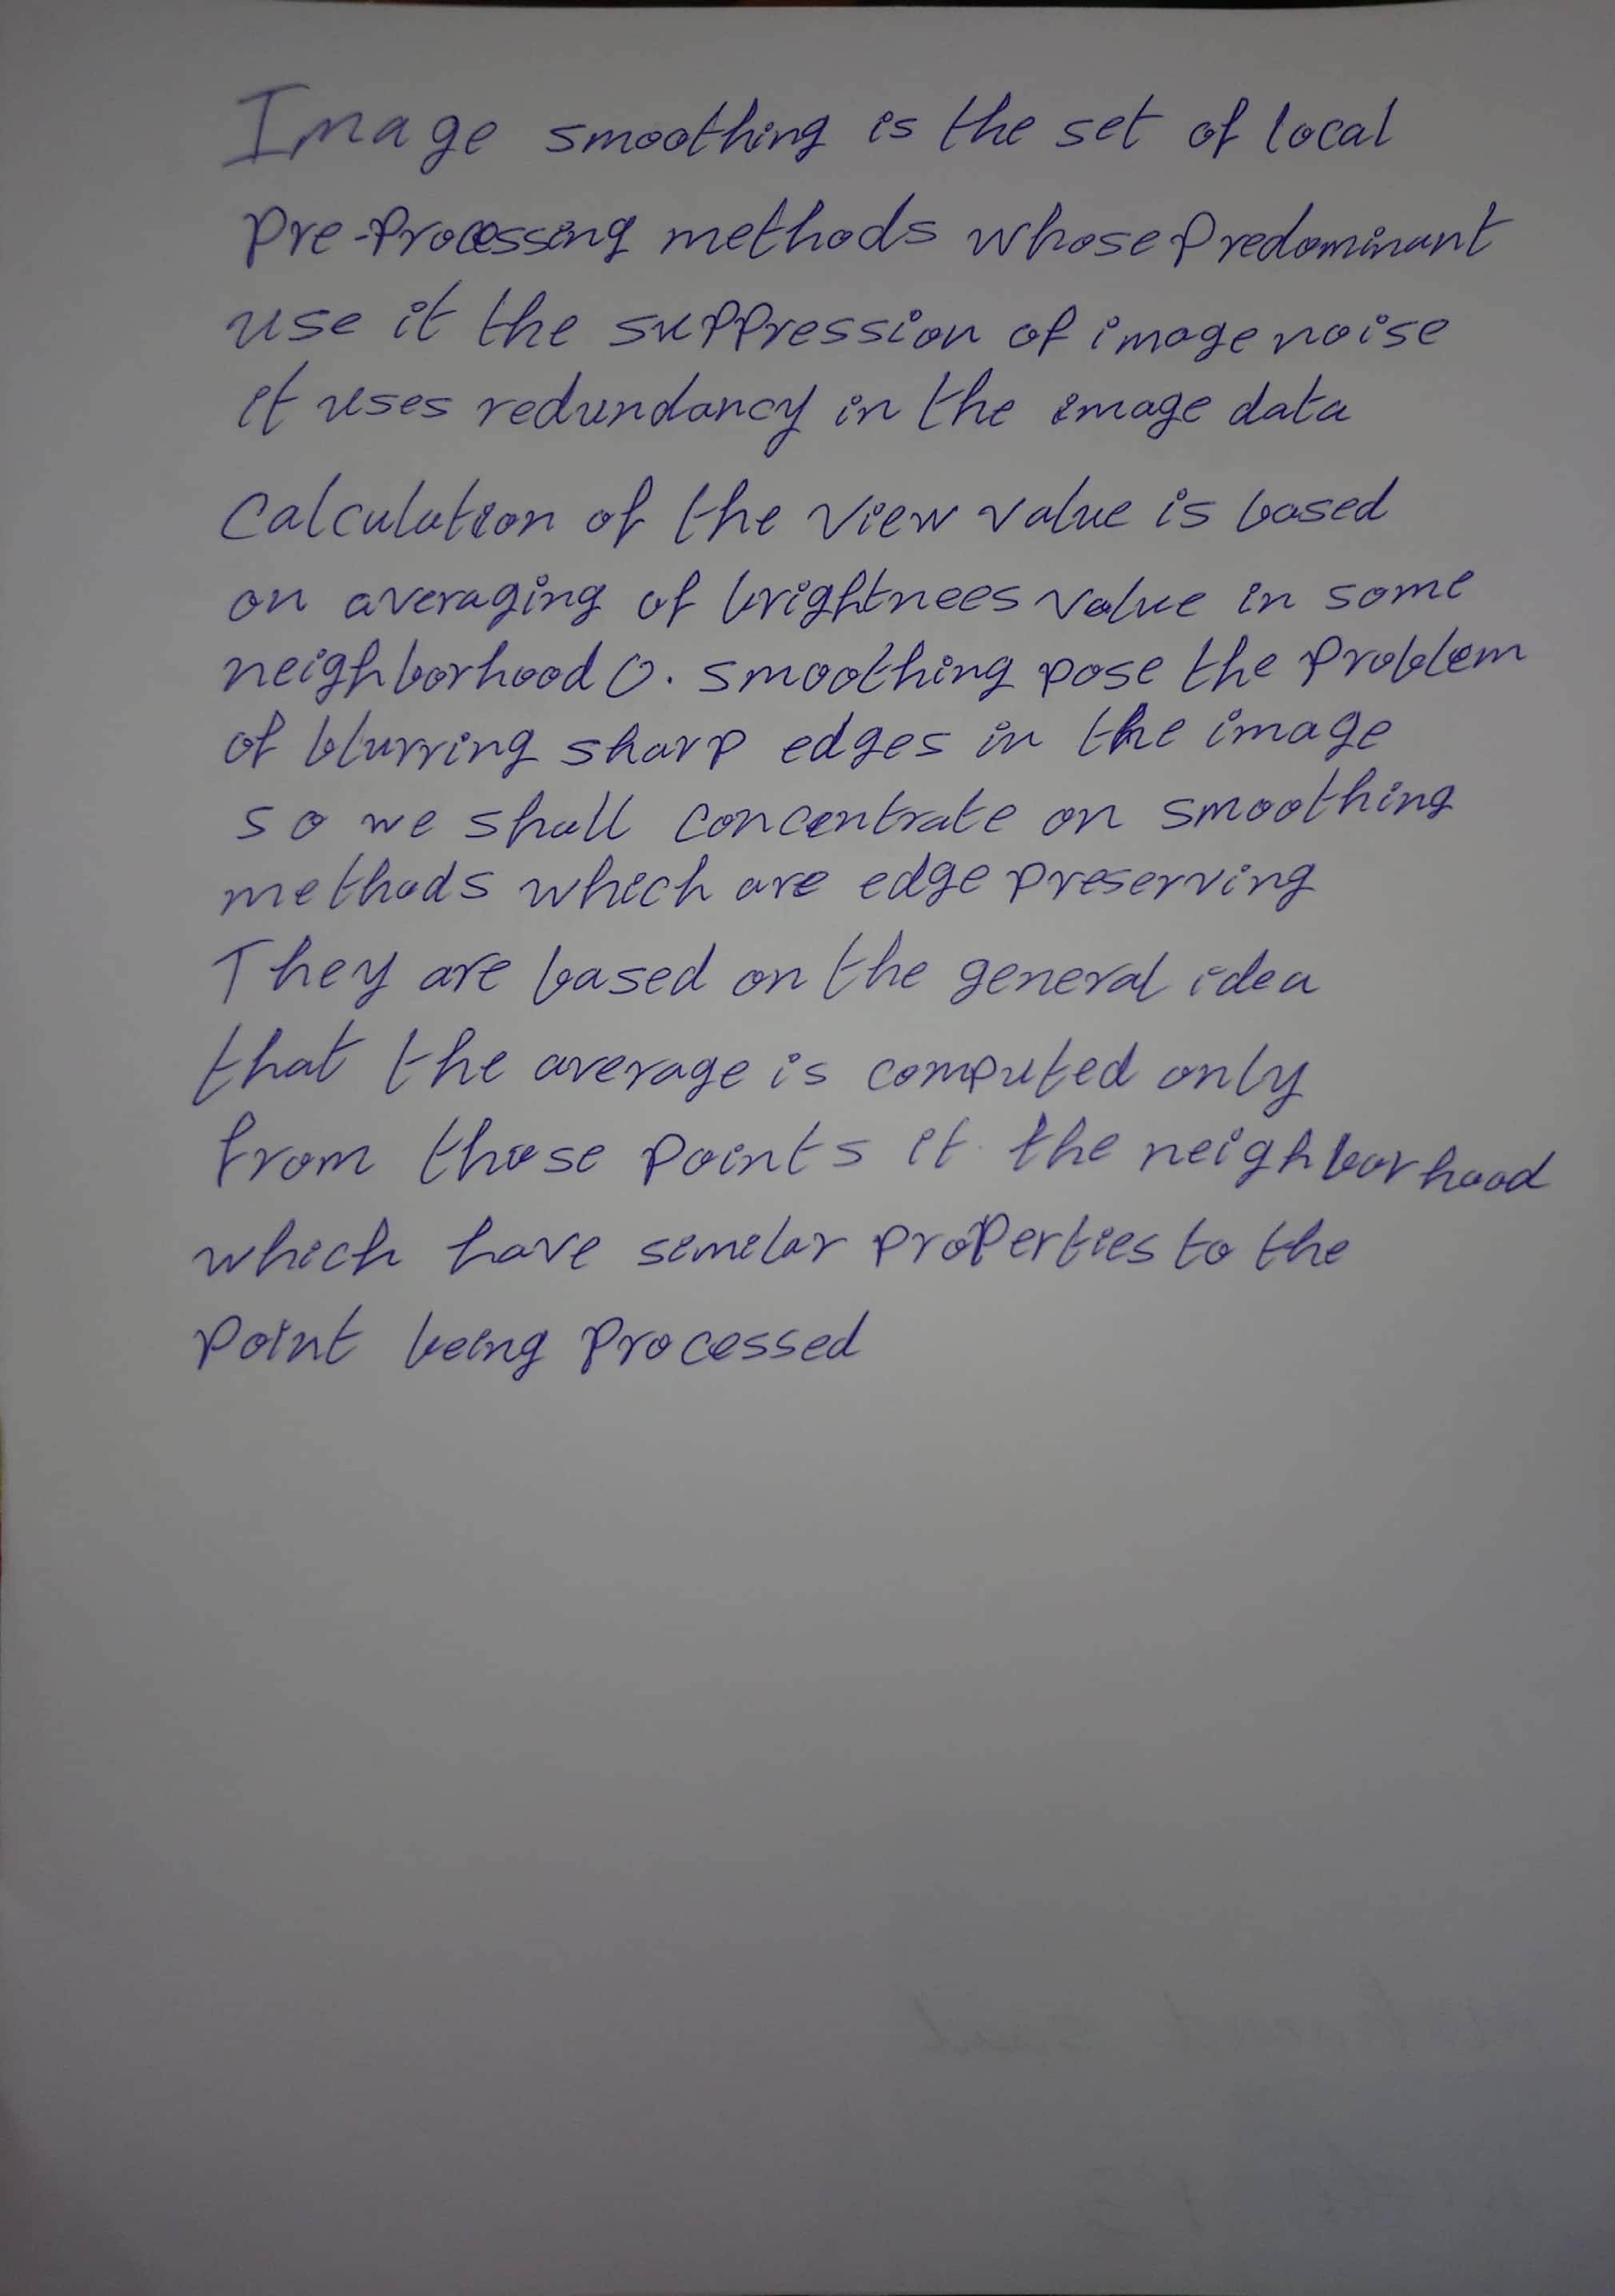 Image smoothing is the set of local
Pre-Processing methods whose Predominant
use it the suppression of image noise
it uses redundancy in the image data
Calculation of the view value is based
on averaging of brightnees value in some
neighborhood O. smoothing pose the Problem
of blurring sharp edges in the image
so we shall concentrate on smoothing
methods which are edge preserving
They are based on the general idea
that the average is computed only
from those points it the neighborhood
which have similar properties to the
Point being Processed